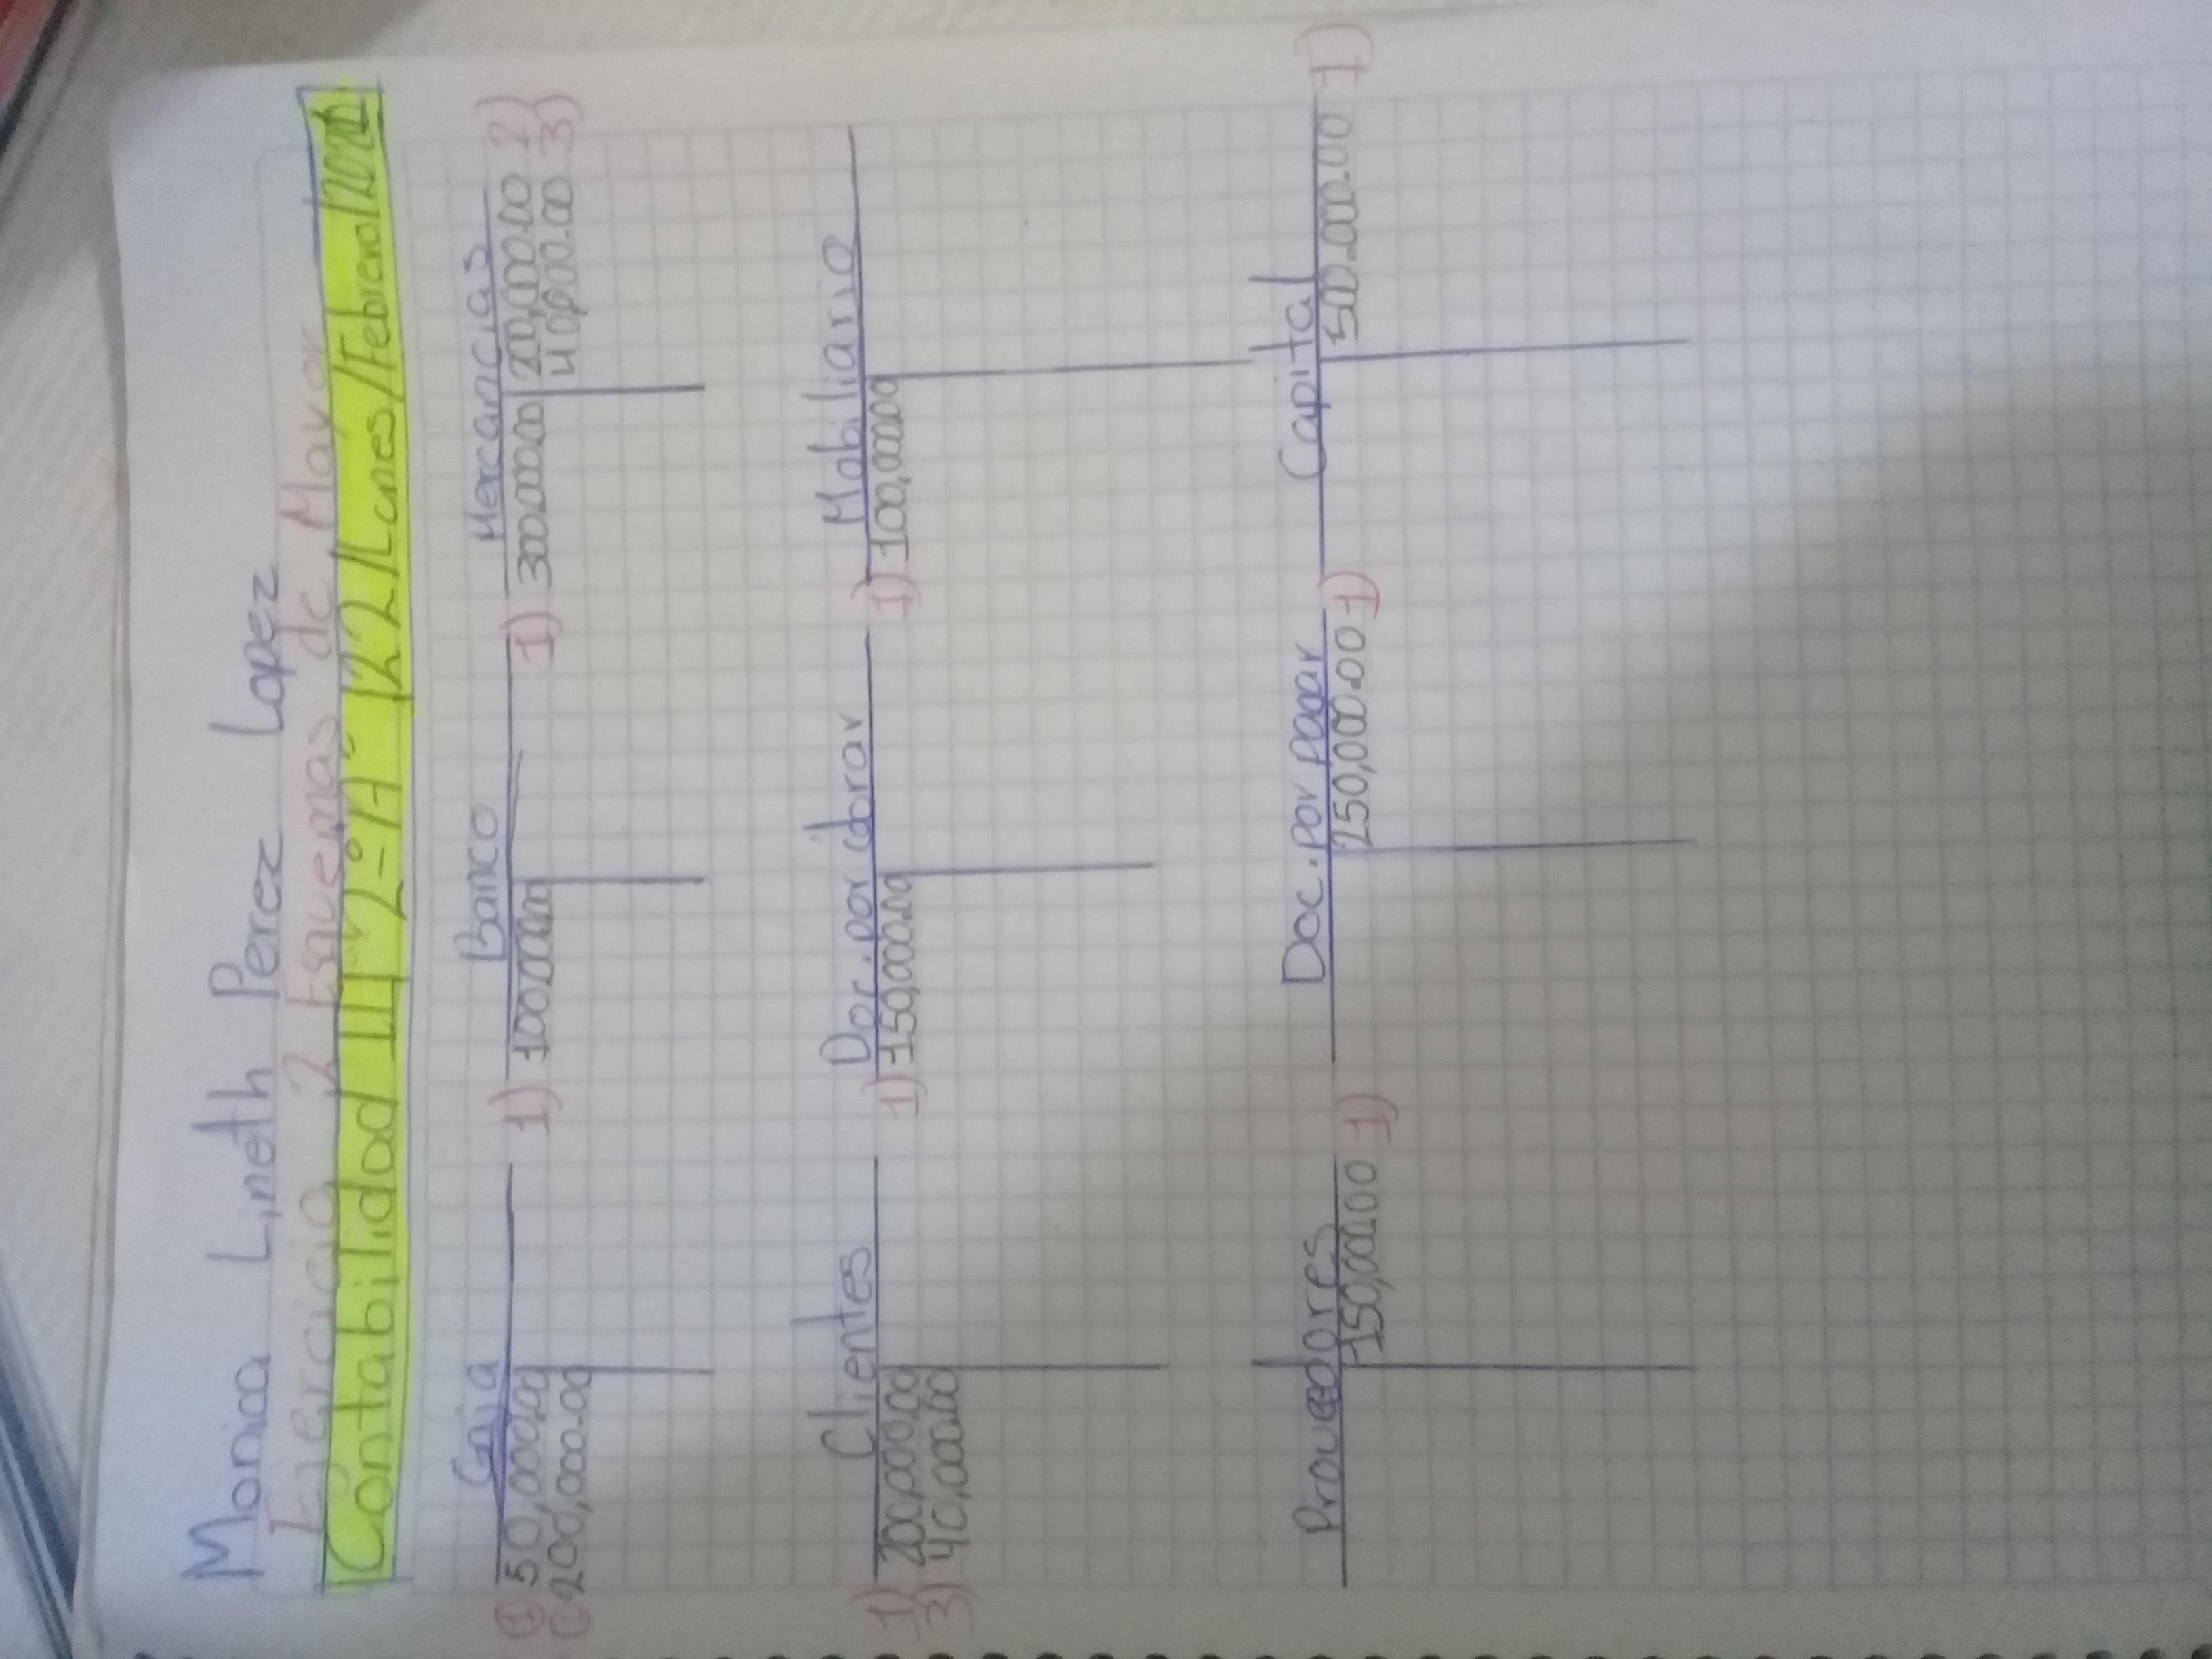 Monica Lineth Perez Lopez
Ejercicio 2 Esquemas de Mayor
Contabilidad III "2-°A" /22/Lunes/Febrero/2021
Caja Banco Mercancias
1) 50,000.00 1) 100,000.00 1) 300,000.00 200,000.00 2)
200,000.00 40,000.00 3)
Clientes Doc. por cobrar Mobiliario
1) 200,000.00 1) 150,000.00 1) 100,000.00
3) 40,000.00
Proveedores Doc. por pagar Capital
150,000.00 1) 250,000.00 1) 500.000.00 1)